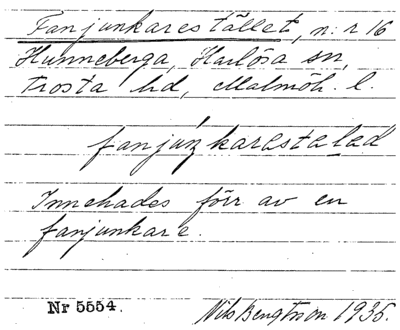 Fanjunkarestället, n:r 16
Hunneberga, Harlösa sn,
Frosta hd, Malmöh. l.
fanjúnkarestalad
Innehades förr av en
fanjunkare.
Nr 5554.
Nils Bengtsson 1935.